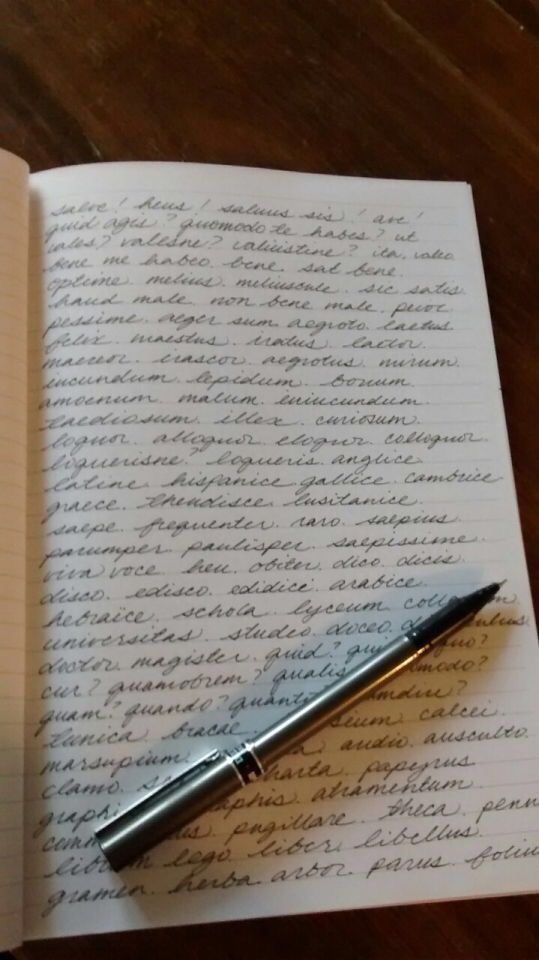 salve! heus! salvus sis! ave!
quid agis? quomodo te habes? ut
vales? valesne? valuistine? ita. valeo
bene me habeo. bene. sat bene.
optime. melius. meliuscule. sic satis.
haud male. non bene. male. peior.
pessime. aeger sum. aegroto. laetus
felix. maestus. iratus. laetor.
maereor. irascor. aegrotus. mirum.
iucundum. lepidum. bonum.
amoenum. malum. iniucundum.
taediosum. illex. curiosum.
loquor. alloquor. eloquor. colloquor.
loquerisne? loqueris. anglice.
latine. hispanice. gallice. cambrice
graece. theudisce. lusitanice.
saepe. frequenter. raro. saepius.
parumper. paulisper. saepissime.
viva voce. heu. obiter. dico. dicis.
disco. edisco. edidici. arabice.
hebraïce. schola. lyceum.
universitas. studeo. doceo.
doctor. magister. quid? quo?
cur? quamobrem? qualis
quam? quando?
tunica. bracae. calcei.
marsupium. audio. ausculto.
clamo. charta. papyrus
graphis. atramentum.
pugillare. theca. penn
lego. liber. libellus.
gramen. herba. arbor. parus. foliu